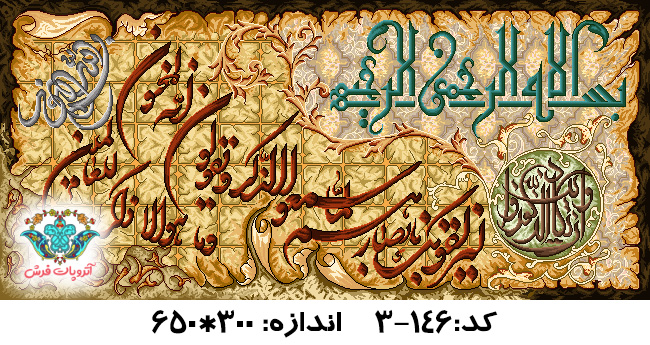 بسم الله الرحمن الرحیم
وان یکاد الذین کفروا
لیزلقونک بابصارهم لما سمعوا الذکر و یقولون انه لمجنون
و ما هو الا ذکر للعالمین
آتروپات فرش
کد:۱۴۶-۳ اندازه: ۳۰۰*۶۵۰